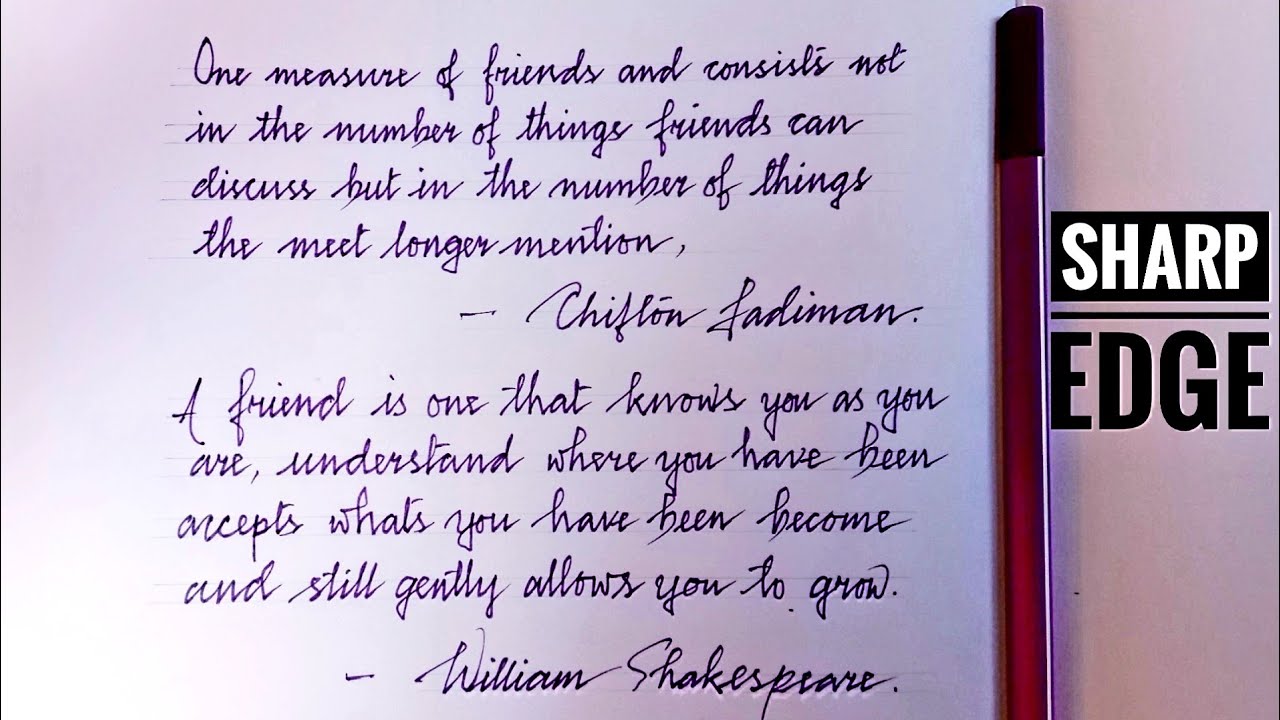 One measure of friends and consists not
in the number of things friends can
discuss but in the number of things
the meet longer mention,
- Chifton Fadiman.
A friend is one that knows you as you
are, understand where you have been
accepts whats you have been become
and still gently allows you to grow.
- William Shakespeare.
SHARP
EDGE